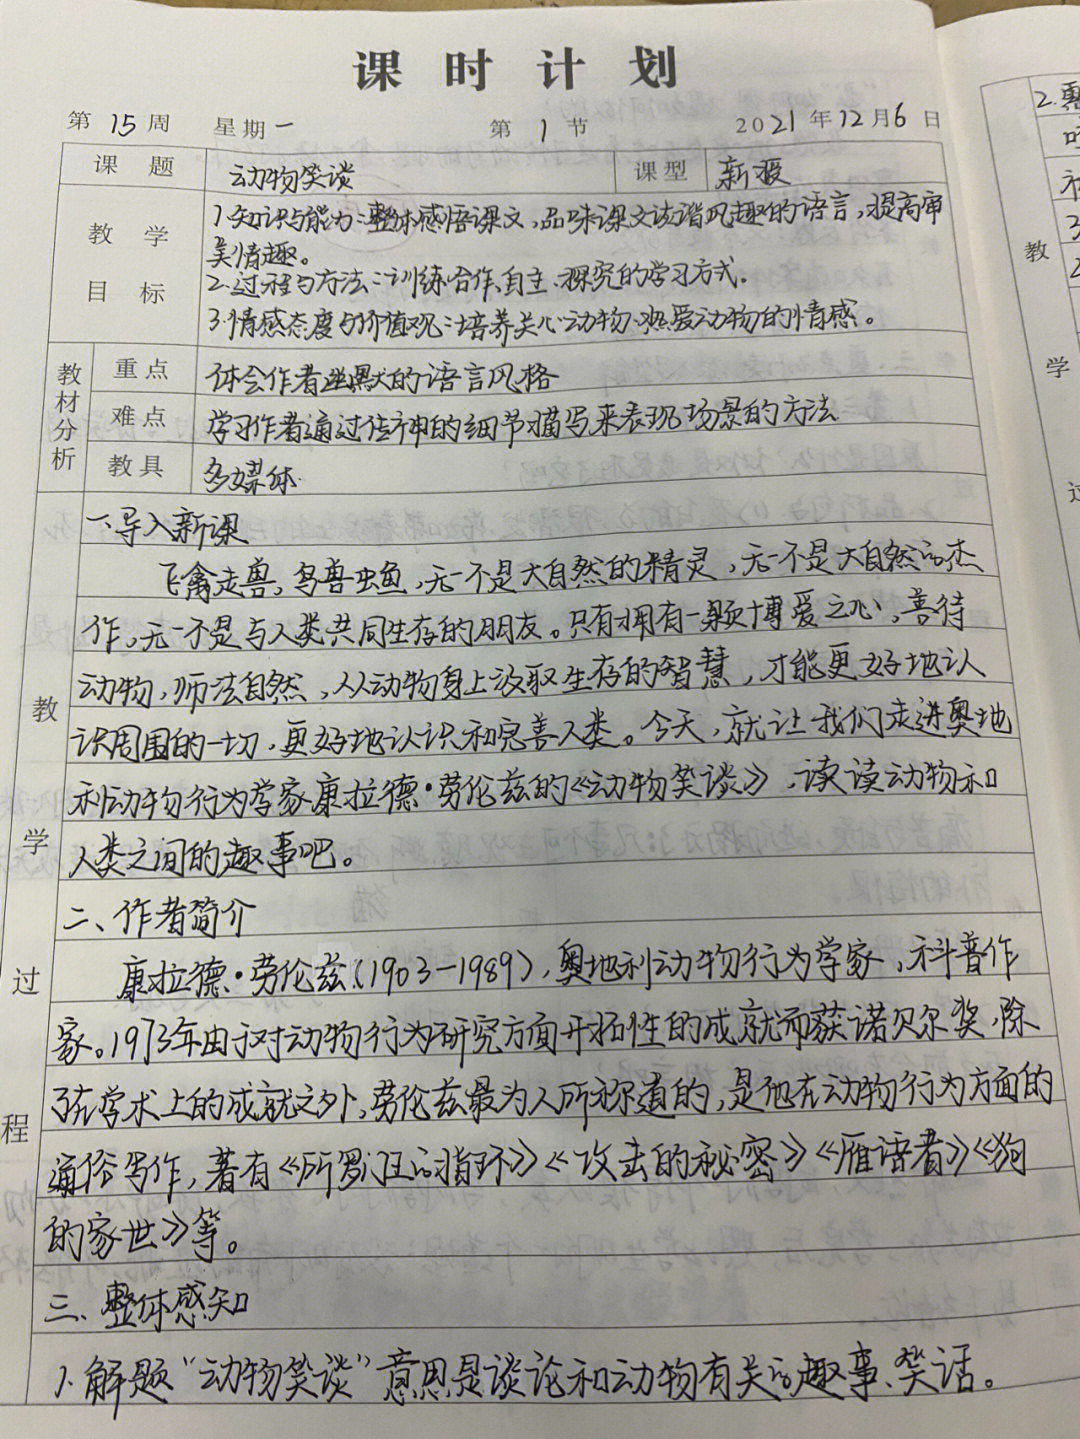 课时计划
第 15 周 星期一 第 1 节 2021年12月6日
课题 动物笑谈 课型 新授
教学目标
1.知识与能力:整体感悟课文,品味课文诙谐风趣的语言,提高审
美情趣。
2.过程与方法:训练合作、自主、探究的学习方式.
3.情感态度与价值观:培养关心动物、热爱动物的情感。
教材分析
重点 体会作者幽默的语言风格
难点 学习作者通过传神的细节描写来表现场景的方法
教具 多媒体.
教学过程
一.导入新课
飞禽走兽,鸟兽虫鱼,无一不是大自然的精灵,无一不是大自然的杰
作,无一不是与人类共同生存的朋友。只有拥有一颗博爱之心,善待
动物,师法自然,从动物身上汲取生存的智慧,才能更好地认
识周围的一切,更好地认识和完善人类。今天,就让我们走进奥地
利动物行为学家康拉德·劳伦兹的《动物笑谈》,读读动物和
人类之间的趣事吧。
二、作者简介
康拉德·劳伦兹(1903-1989),奥地利动物行为学家,科普作
家。1973年由于对动物行为研究方面开拓性的成就而获诺贝尔奖,除
了在学术上的成就之外,劳伦兹最为人所称道的,是他在动物行为方面的
通俗写作,著有《所罗门王的指环》《攻击的秘密》《雁语者》《狗
的家世》等。
三、整体感知
1.解题"动物笑谈"意思是谈论和动物有关的趣事、笑话。
教
学
过
2.